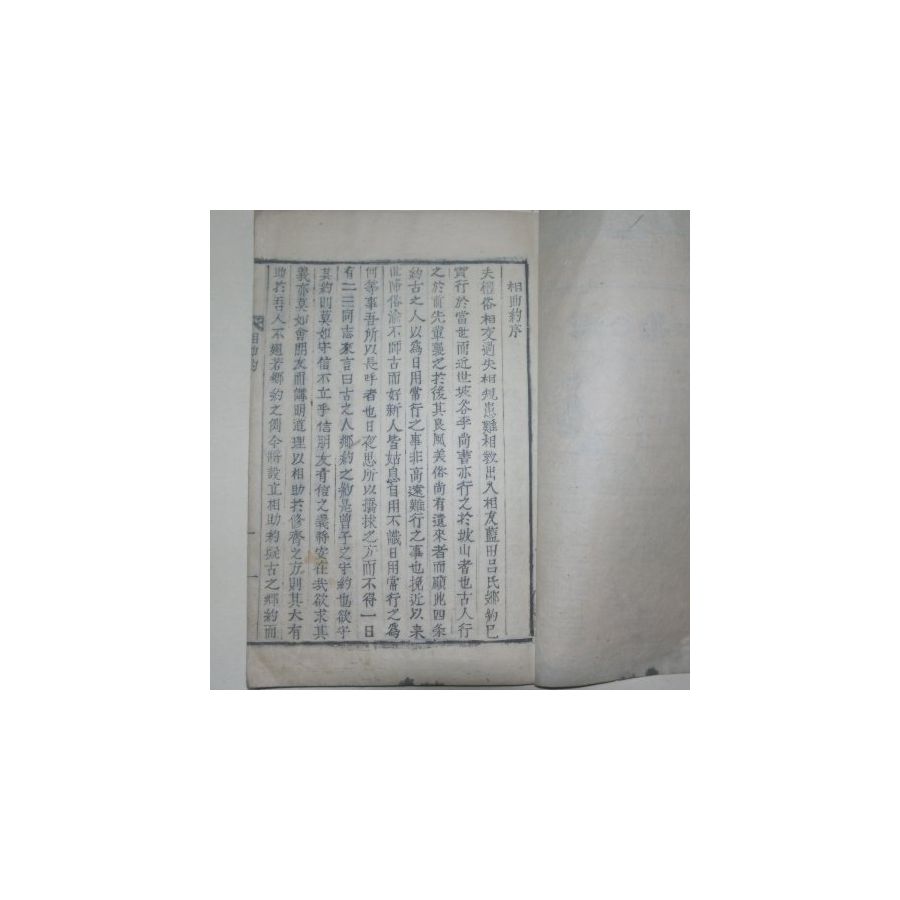 相助約序
夫禮俗相交過失相規患難相救出入相友藍田呂氏鄉約已
實行於當世而近世坡谷乎尚書亦行之於坡山者也古人行
之於前先輩襲之於後其良風美俗尚有遺來者而顧此四條
約古之人以為日用常行之事非高遠難行之事也挽近以来
世降俗渝不師古而好新人皆姑息自用不識日用常行之為
何等事吾所以長呼者也日夜思所以攜捄之方而不得一日
有二三同志來言曰古之人鄉約之約是曾子之守約也欲守
其約則莫如守信不立乎信朋友有信之義將安在㢤欲求其
義亦莫如會朋友而講明道理以相助於修齊之方則其大有
助於吾人不過若鄉約之例令將設立相助約疑古之鄉約而
相助約 一